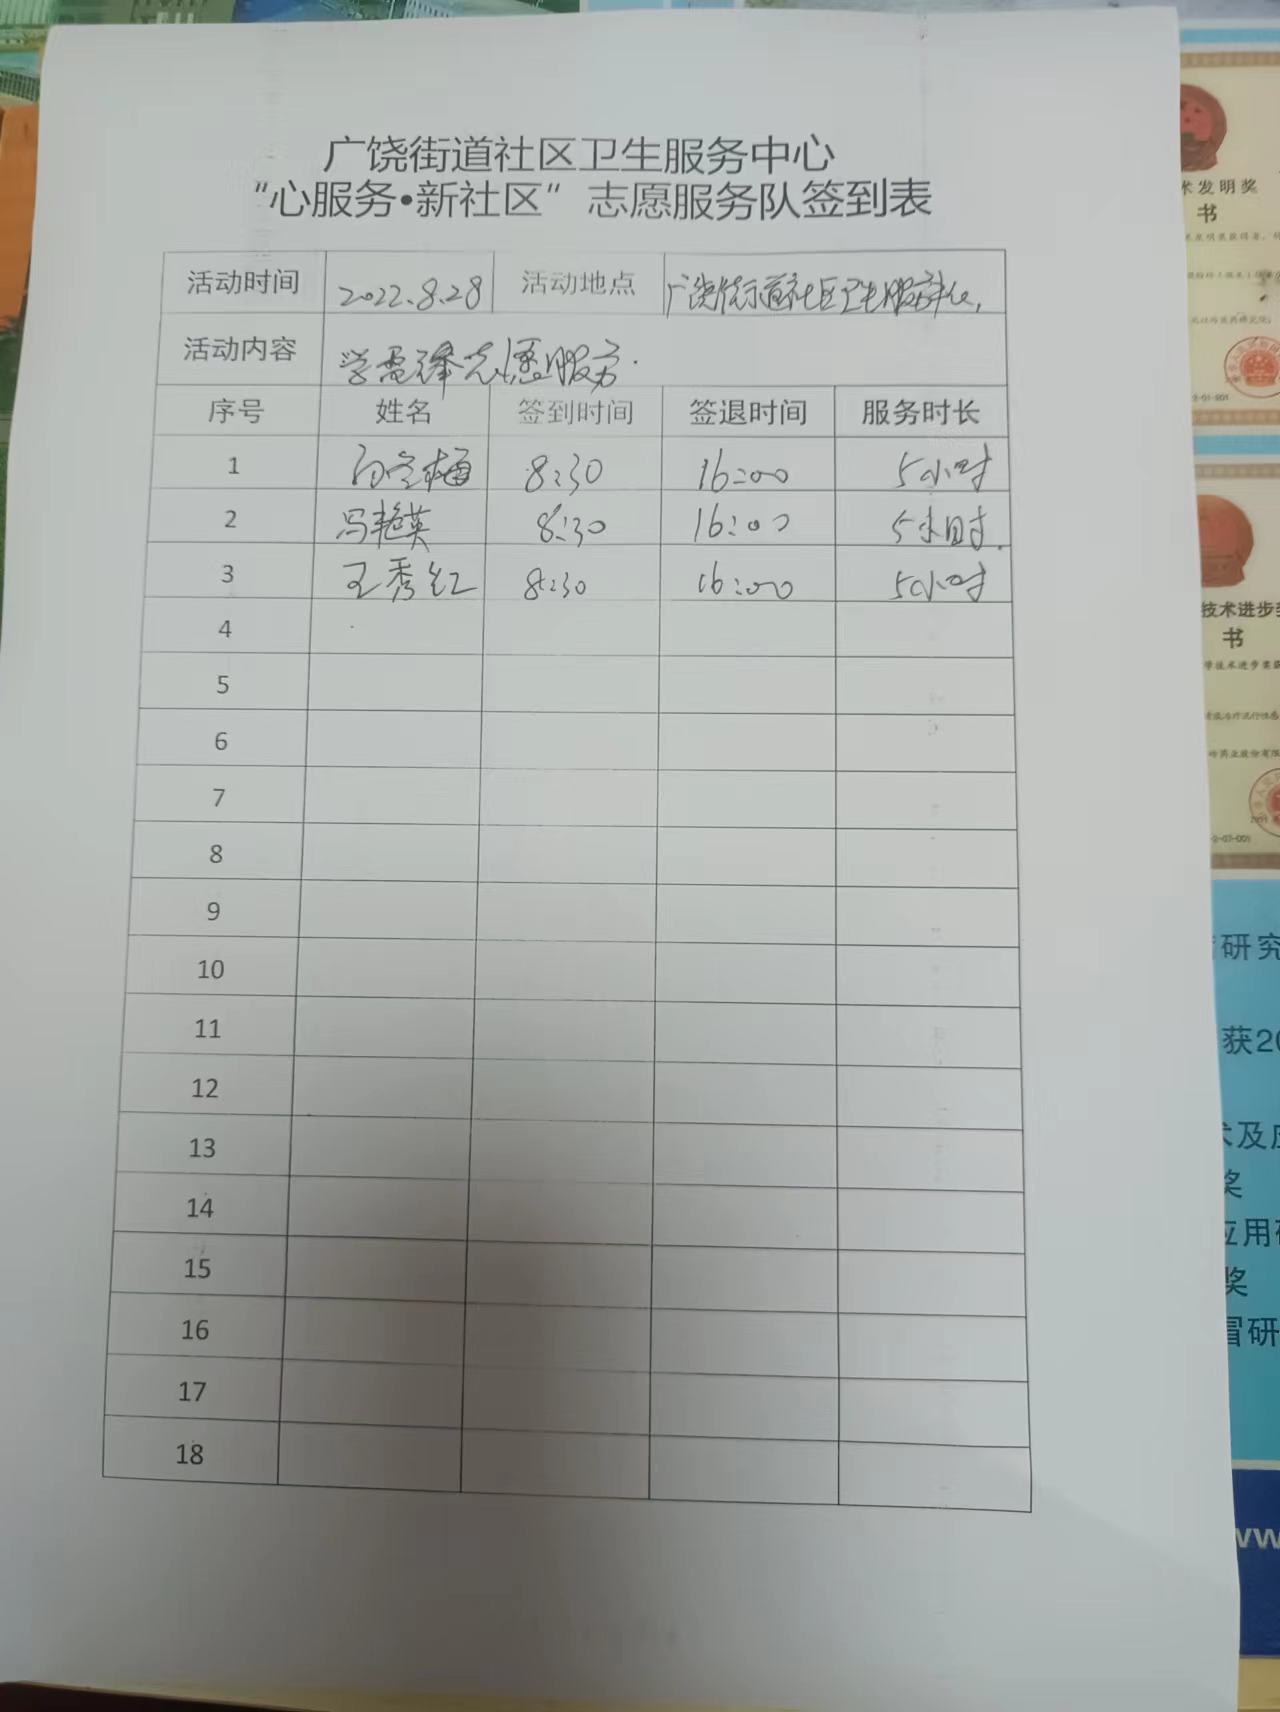 广饶街道社区卫生服务中心
“心服务•新社区”志愿服务队签到表
活动时间 2022.8.28 活动地点 广饶街道社区卫生服务中心
活动内容 学雷锋志愿服务.
序号 姓名 签到时间 签退时间 服务时长
1 向冬梅 8:30 16:00 5小时
2 冯艳英 8:30 16:00 5小时.
3 王秀红 8:30 16:00 5小时
4
5
6
7
8
9
10
11
12
13
14
15
16
17
18
术发明奖
书
技术进步奖
书
研究
获20
术及应
奖
应用研
奖
冒研